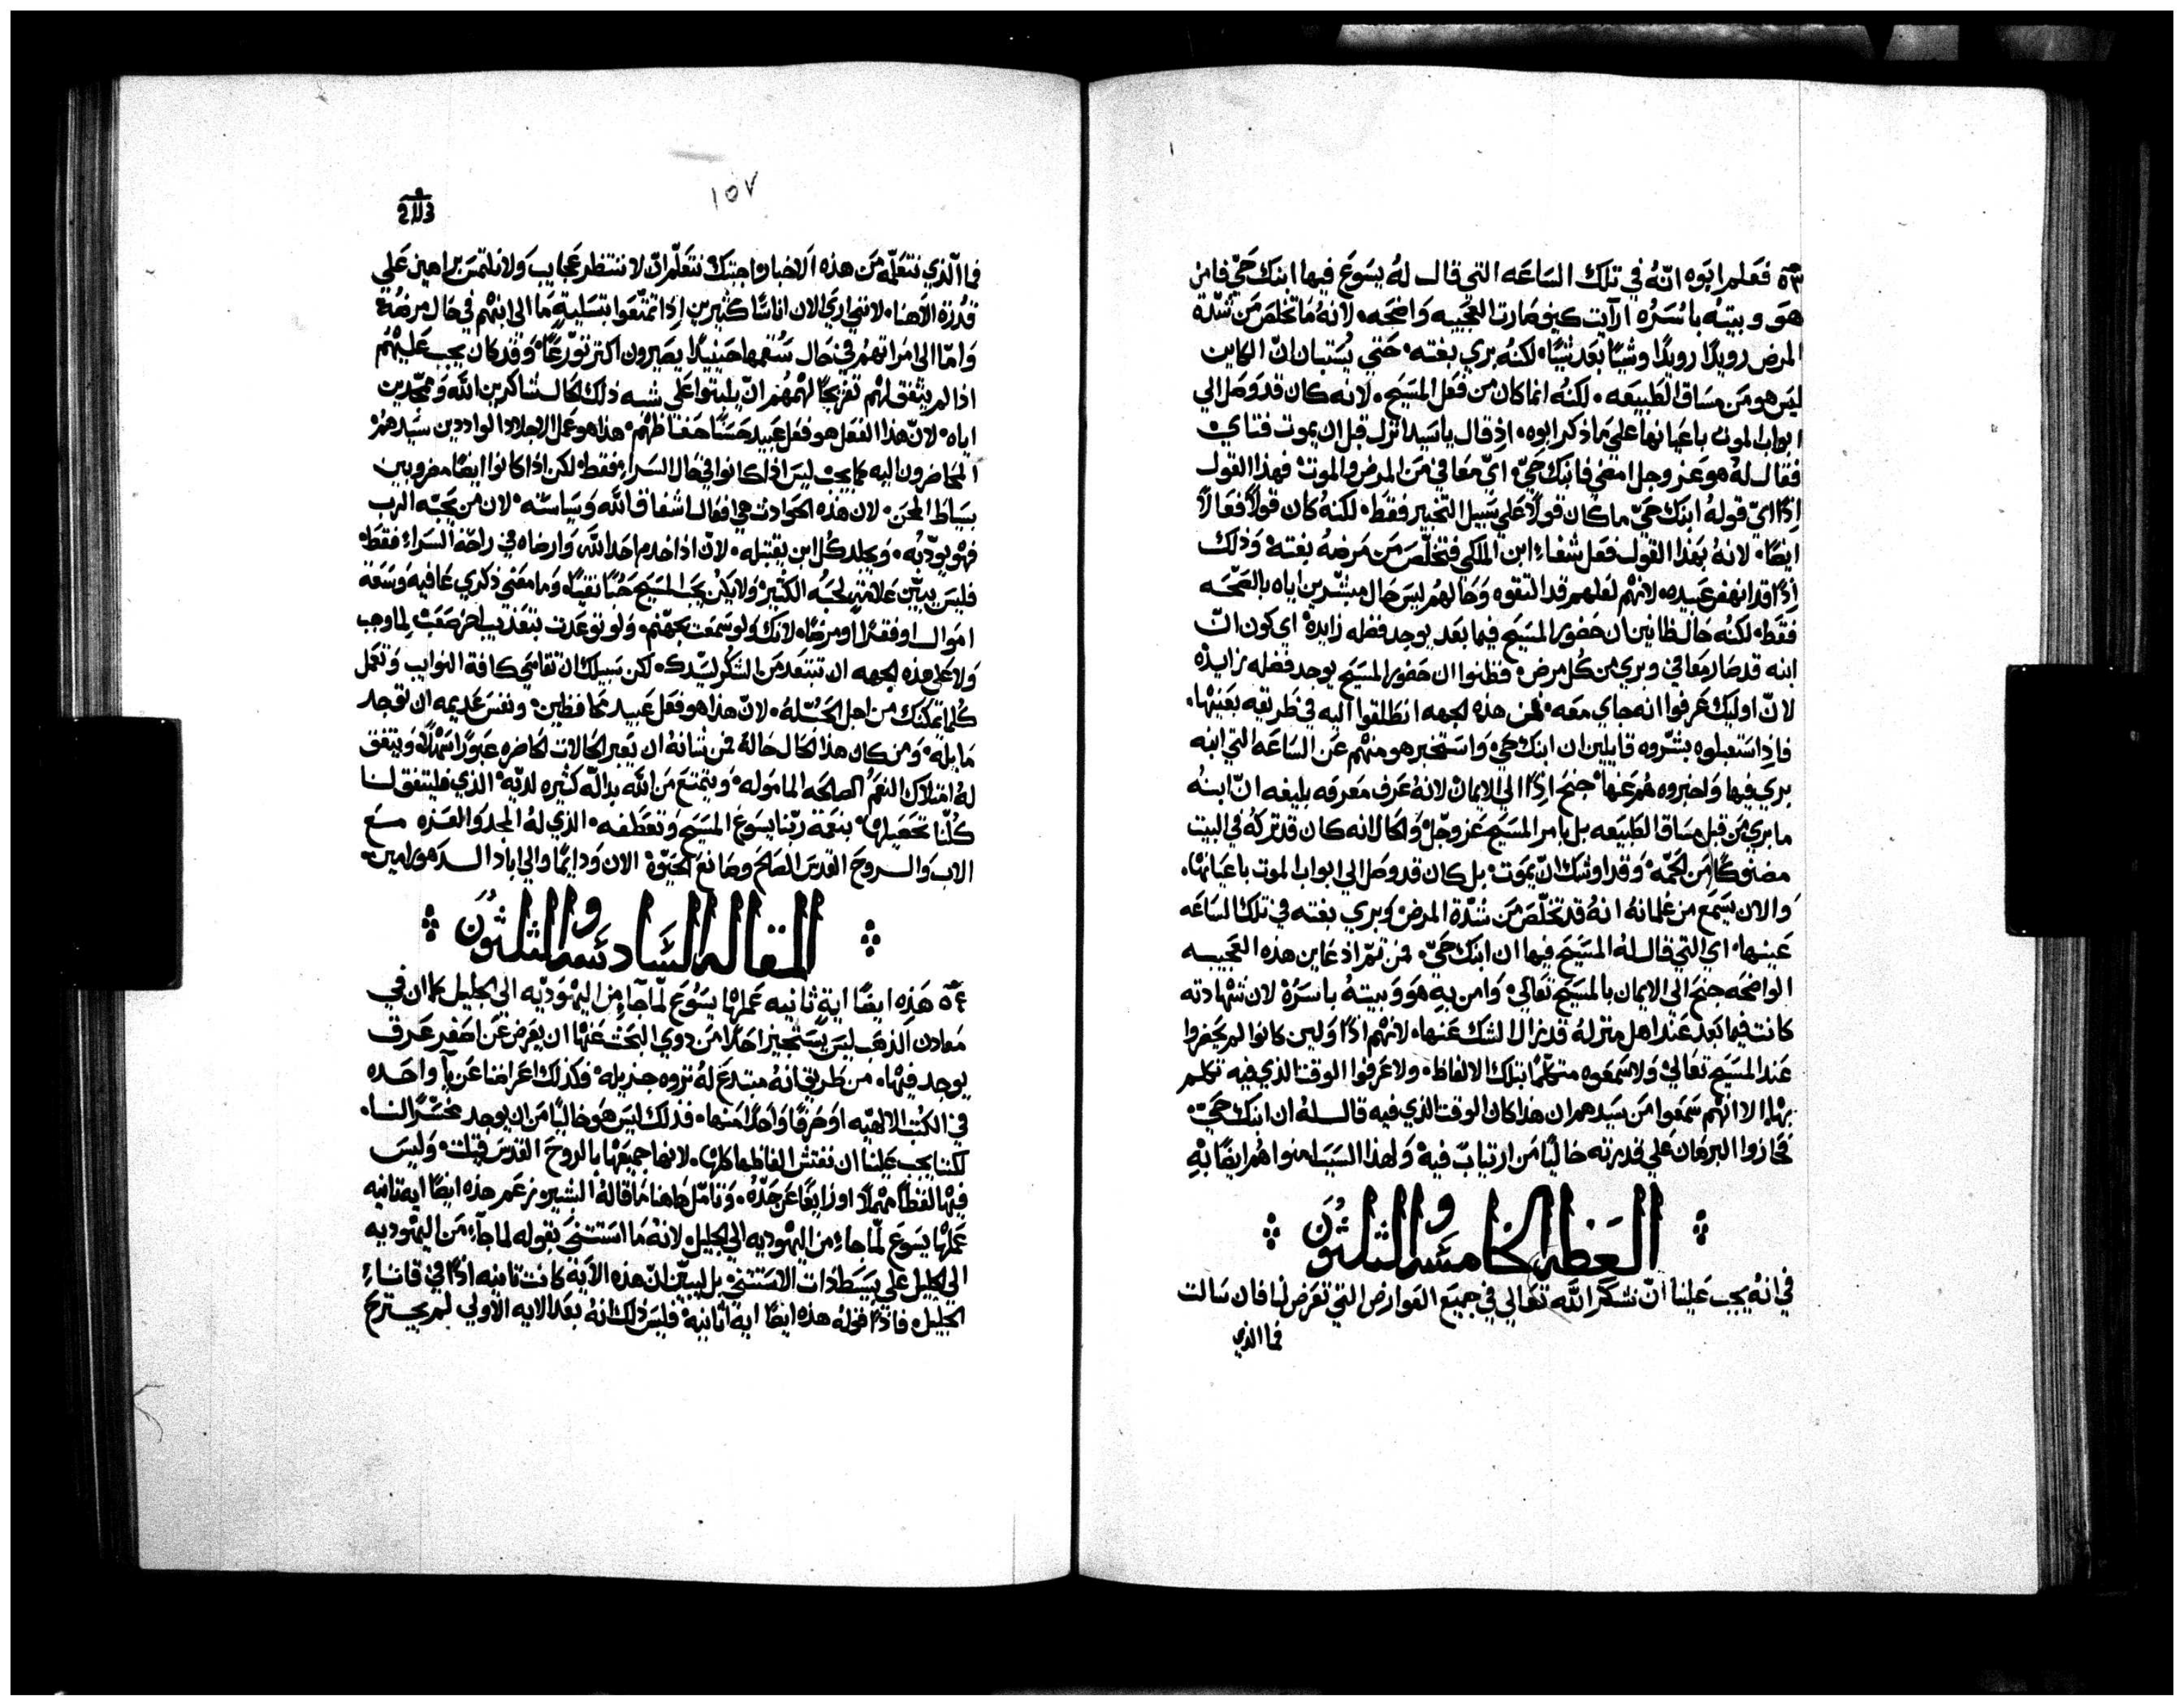 ٥٣ فعَلم ابوه انّهُ في تلك السَاعَه التي قال لهُ يسَوعَ فيها ابنك حَيّ فامن
هوَ وبيتهُ باسَرُه ارآيت كيف صَارت العَجيبه وَاضحَه٠ لانهُ مَا تخلصَ مَن شدّة
المرض رويدًا رويدًا وشيًا بَعَد شيًا٠ لكنهُ بري بغته٠ حَتي يُستبان انّ الكاين
ليسَ هو مَن مسَاق الطبيعَه٠ لكنهُ انما كان من فعَل المسَيح٠ لانه كان قد وصَل الي
ابواب الموت باعيانها علي مَا ذكر ابوه٠ اذ قال ياسَيد انزل قبل ان يموت فتاي
فقال لهُ هوَ عَز وجل امضي فابنك حَيّ٠ ايّ معَافي مَن المرض والموت٠ فهذا القول
اذًا ايّ قولهُ ابنك حَيّ ما كان قولاً عَلي سَبيل التخبير فقط٠ لكنهُ كان قولاً فعَالاً
ايضًا٠ لانهُ بهَذا القول فعَل شفاء ابن الملكي فتخلّصَ مَن مَرضهُ بغتهْ وَذلك
اذًا قد انهضَ عَبيده٠ لانهُم لعَلهم قد التقوه وَحَالهُم ليسَ حَال مبشّرين اياه بالصَحّه
فقط٠ لكنهُ حَال ظانين ان حَضوَر المسَيح فيما بَعَد يوجد فضله زايدة٠ اي كون انّ
ابنه قد صَار معَافي وبري من كُل مرض٠ فظنوا ان حضورَ المسَيح يوجد فضله زايدْه
لانّ اوليك عَرفوا انه جاي معَه٠ فمن هذه الجهه انطلقوا اليه في طريقه بعَينها٠
فاذا استقبلوه بشّروه قايلين ان ابنك حي٠ وَاستخبر هو منهُم عَن السَاعَه التي ابنه
بري فيها وَاخبروه هُم عَنها٠ جنح اذًا الي الايمان لانهُ عَرف معَرفه بليغه انّ ابنهُ
ما بري مَن قبل مسَاق الطبيعَه بل بامر المسَيح عَز وجَلّ وَالحَال انه كان قد تركهُ في البيت
مضنوكًا مَن الحمّه٠ وَقد اوشك انّ يموَت٠ بل كان قد وصَل الي ابواب الموت باعيانها٠
وَالان يسَمَع من غلمانهُ انهُ قد تخلّصَ مَن شدّة المرض وبري بغته في تلك السَاعَه
عَينها٠ اي التي قال لهُ المسَيحَ فيها ان ابنك حَيّ٠ فمن ثمّ اذ عَاين هذه العَجيبه
الواضحَه جنح الي الايمان بالمسَيح تعَالي٠ وَامن بهِ هوَ وَبيتهُ باسَرُهْ لان شهَادته
كانت فيما بَعَد عَند اهل منزلهُ قد تزال الشك عَنها٠ لانهُم اذًا وَلين كانوا لم يحضروا
عَند المسَيح تعَالي٠ وَلا سَمعَوه متكلّمًا بتلك الالفاظ٠ ولا عَرفوا الوقت الذي فيه تكلم
بهَا٠ الا انهُم سَمَعوا مَن سَيدهم ان هذا كان الوقت الذي فيه قال لهُ ان ابنك حَيّ٠
فحازوا البرهَان عَلي قدرته خاليًا مَن ارتيابً فيهْ وَلهذا السَبب امنوا هُم ايضًا بهِ
العَظه الخامسَه والثلثوُن
في انهُ يجب عَلينا انّ نشكر اللّه تعَالي في جميعَ العَوارض التي تعَرض لنا فان سَالت
فما الذي
١٥٧
فما الذي نتعَلّمه مَن هذه الاخبار٠ اجبتك نتعَلّم انّ لا ننتظر عجايب وَلا نلتمسَ براهين عَلي
قدُرة الاهنا٠ لانني اري الان اناسًا كثيرين اذا تمتّعَوا بتسَلية مَا الي ابنهُم في حَال مرضهُ
وَامّا الي امَراتهمُ في حَال سُقمها حينيذً يصَيرون اكثر توّرعًا٠ وَقد كان يجب عَليهُم
اذا لم يتفق لهُم تفريجًا لهمُهُم انّ يلبثوا عَلي شبه ذلك الحَال شاكرين اللّه وَممجّدين
اياه٠ لانّ هذا الفعَل هو فعَل عَبيد حَسَنًا حفاظهُم٠ هذا هو عَمل الاجلاد الوَاددين سَيدهمُ
المحَاضرون اليه كما يجب٠ ليسَ اذا كانوا في حَال السَراء فقط٠ لكن اذا كانوا ايضًا مضروبين
بسَياط المحَن٠ لان هذه الحَوادث هي افعَال اشفاق اللّه وَسَياسَته٠ لان من يحَبّه الرب
فهُو يودّبُه٠ وَيجلد كُل ابن يقتبله٠ لانّ اذا خدم احَد اللّه وَارضَاه في راحَة السَراء فقطْ
فليسَ يبيّن عَلامَة لحبّه الكثير٠ وَلا يكُن يحَب المسَيح حَبًا نقيًا٠ وَما معَني ذكري عَافيه وَسَعَة
امَوال اوفقرًا اومرضًا٠ لانك وَلو سَمعَت بجَهنّم٠ وَلو توعَدت بتعَذيب اخر صَعَب٠ لما وجب
وَلا عَلي هذه الجهه ان تبتعَد مَن الشكر لسَيّدك٠ لكن سَبيلك ان تقاسَي كافة النوايب وَتعَمل
كُلما يمكنك مَن اجل الحَبّ لهُ٠ لانّ هذا هو فعَل عَبيد محَافظين٠ ونفسَ عَديمه ان توَجد
مَايلهْ٠ وَمن كان هذا الحَال حَالهُ فمن شانهُ ان يَعَبر الحَالات الحَاضره عَبوًرا سَهلاً٠ وَيتفق
لهُ امتلاك النعَم الصَالحَه المامَوله٠ وَيتمتعَ مَن اللّه بدالّه كثيره لديّه٠ الذي فليتفق لنا
كُلنا تحَصَيلها٠ بنعَمة ربّنا يسَوع المسَيح وَتعَطفه٠ الذي لهُ المجد وَالعَزه معَ
الاب وَالروحَ القدس الصَالح وصَانعَ الحَيوّة الان وَدايمًا والي اباد الدهور امين
المقاله السَادسَه والثلثوُن
٥٤ هَذه ايضًا اية ثانيه عَملها يسَوُع لمّا جآء مِن اليهَوديّه الي الجليل كما ان في
معَادن الذهَب ليسَ يسَتجيز احَدًا مَن ذوي البحَث عَنها ان يعَرض عَن احَقر عَرق
يوجد فيها٠ من طريق انهُ مبتدع لهُ ثروه جزيله٠ فكذلك اعَراضنا عَن يآ واحَده
في الكتب الالهيّه اوحَرفًا وَاحَدًا منها٠ فذلك ليسَ هوَ خاليًا مَن ان يوجد مخسَرًا لنا٠
لكننا يجب عَلينا ان نفتش الفاظها كلها٠ لانها جميعَها بالروح القدسَ قيلت٠ وَليسَ
فيها لفظًا مهملًا اوزايغًا عَن جَدّهُ٠ وَتامّل هَاهنا مَا قالهُ البشير زعَم هذه ايضًا اية ثانيه
عَملها يسَوع لمّا جَاء من اليهوديه الي الجليل٠ لانهُ مَا استثني بقوله لما جآء مَن اليهوديه
الي الجليل علي بسَيط ذات الاستثني٠ بل ليبيّن انّ هذه الاية كانت ثانيه اذًا في قاناء
الجليل٠ فاذًا قولهُ هذه ايضًا اية ثانيه٠ فليسَ ذلك انهُ بعَد الايه الاولي لم يجترح